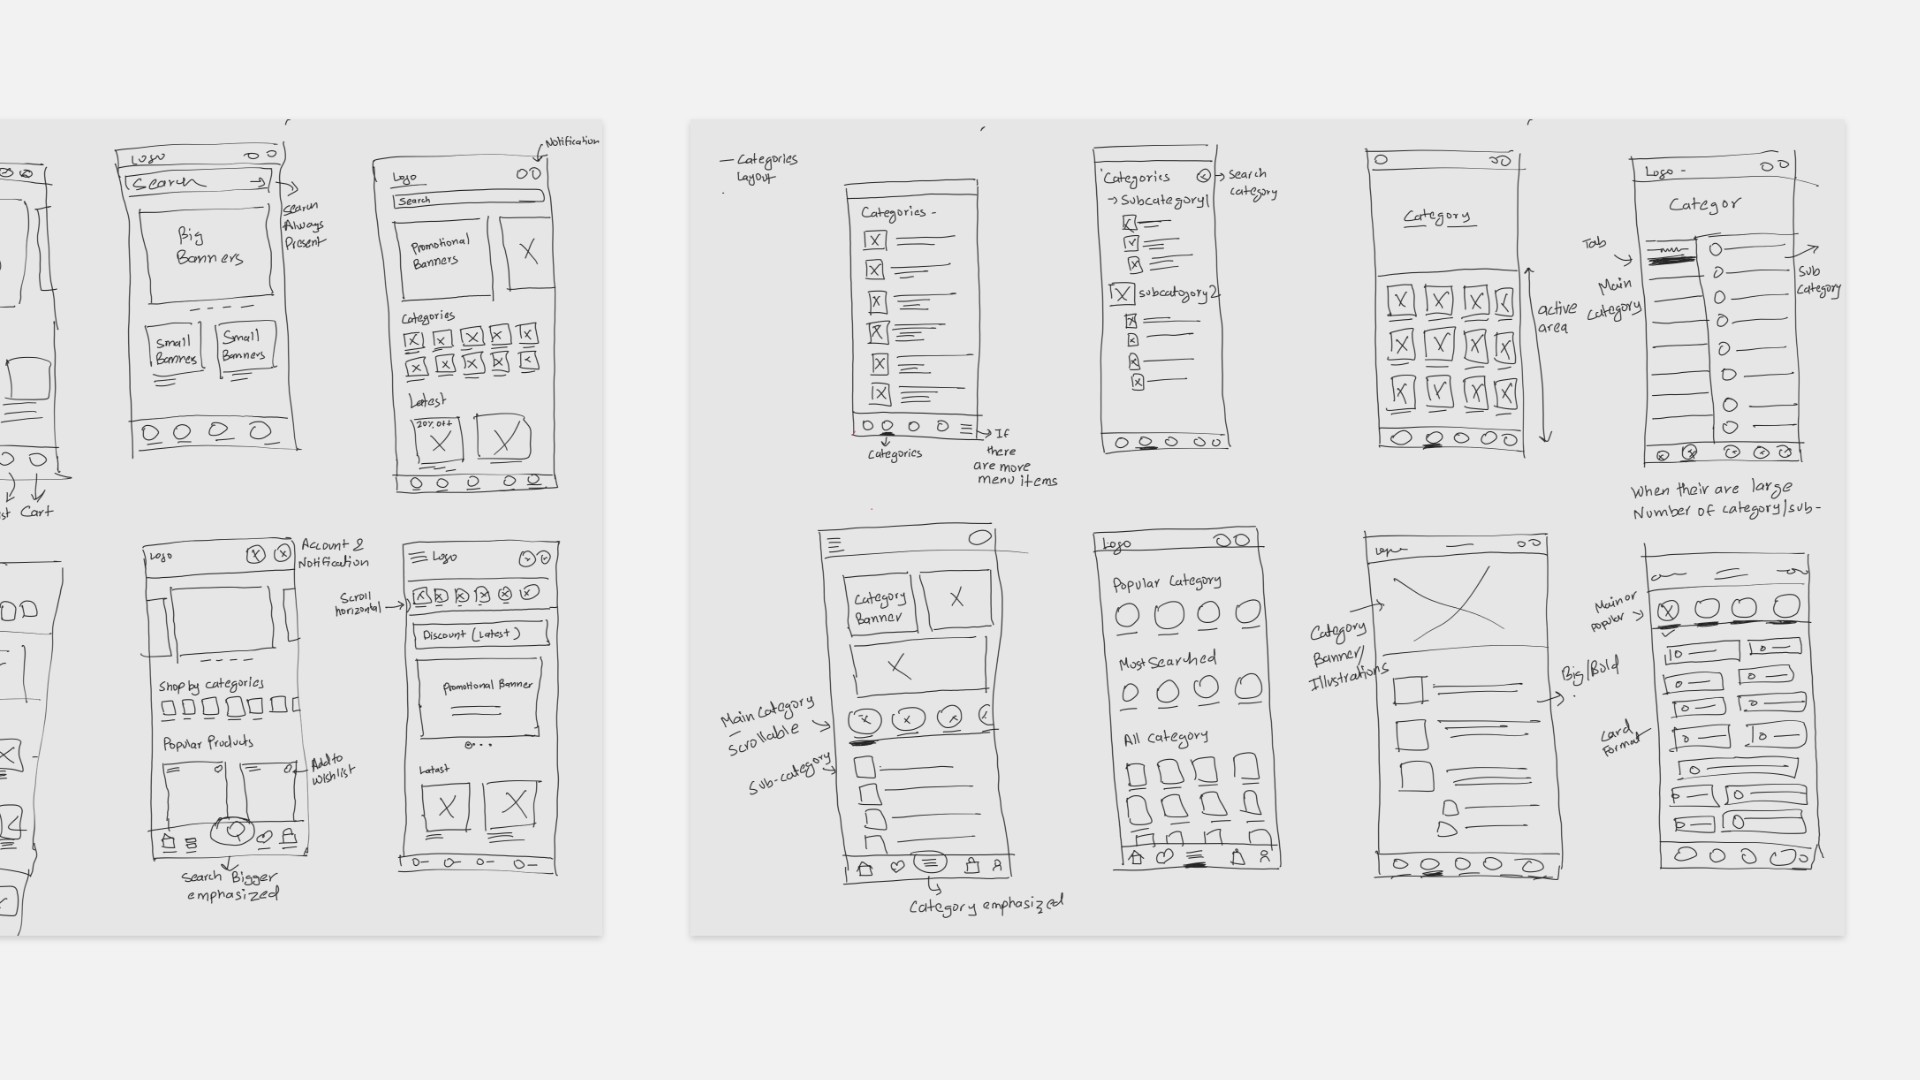 Logo
Search
Search
Always
Present
Big
Banners
Small
Bannes
Small
Banners
Notification
Logo
Search
Promotional
Banners
Categories
Latest
20% Off
Cart
Logo
Account &
Notification
Shop by categories
Popular Products
Add to
Wishlist
Search Bigger
emphasized
Logo
Scroll
horizontal
Discount (Latest)
Promotional Banner
Latest
— Categories
Layout
Categories -
Categories
If
there
are more
menu items
Categories
Search
category
→ Subcategory1
Subcategory2
Category
active
area
Logo -
Categor
Tab
Main
category
Sub
Category
When their are large
Number of category/sub-
Category
Banner
Main Category
Scrollable
Sub-category
Category emphasized
Logo
Popular Category
Most Searched
All category
Category
Banner/
Illustrations
Big/Bold
Main or
popular
Card
Format